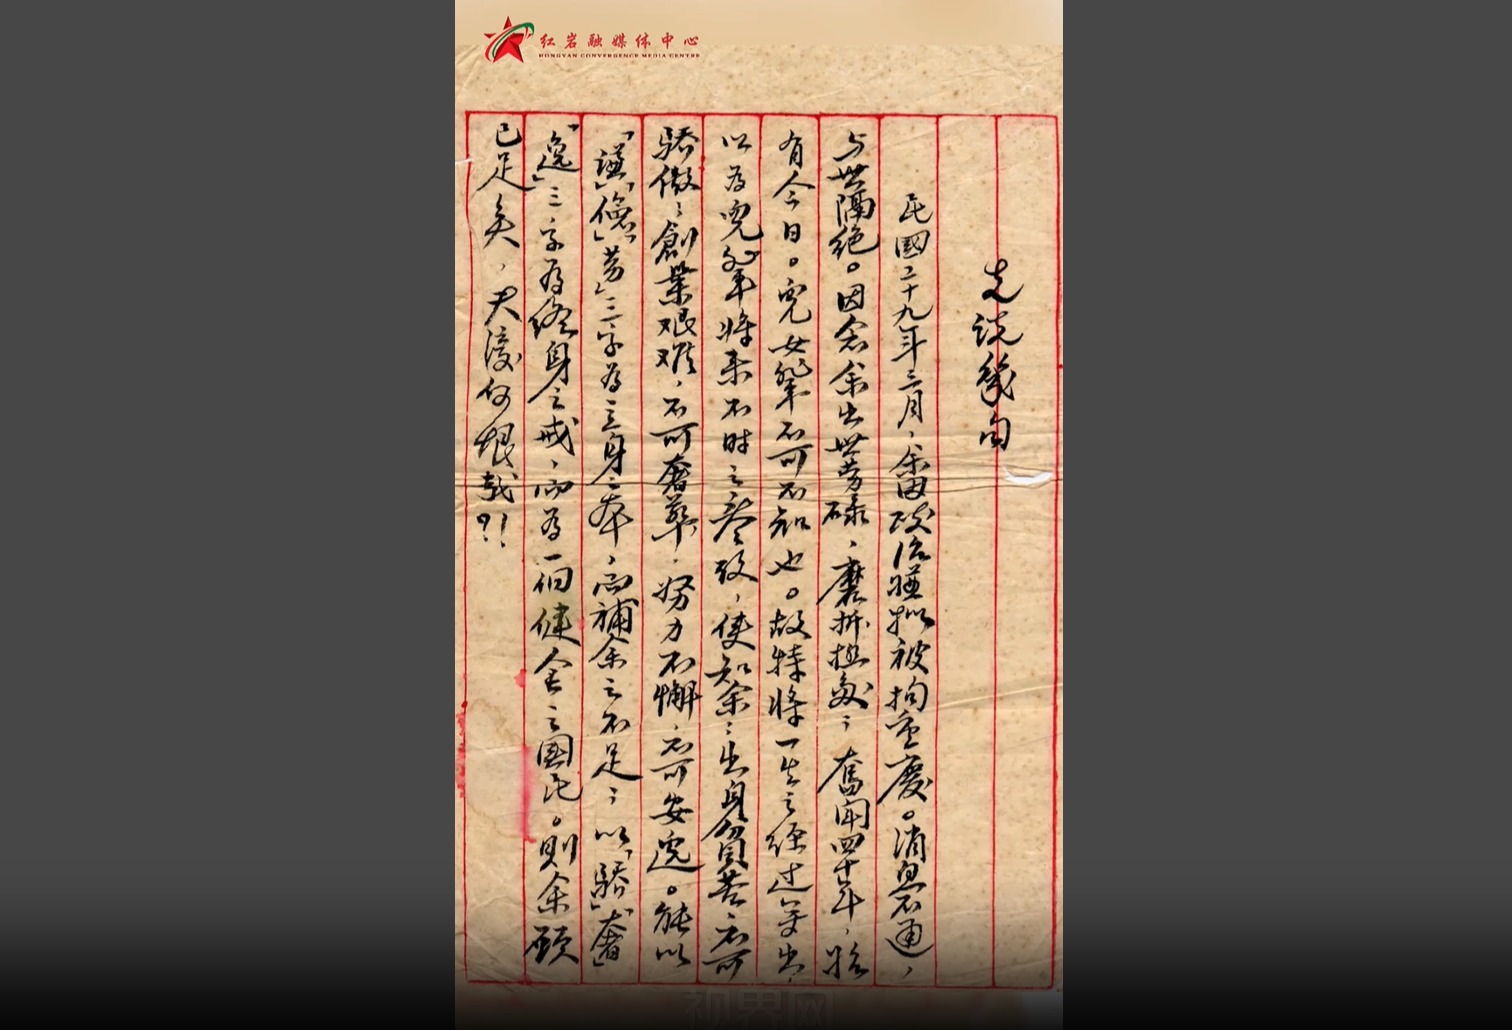 红岩融媒体中心
HONGYAN CONVERGENCE MEDIA CENTRE
先说幾句
民國二十九年三月，余因政治嫌拟被拘重慶。消息不通，
与世隔绝。因念余出世劳碌，磨折极多；奮闘四十年，始
有今日。兒女辈不可不知也。故特将一生之经过写出，
以为兒辈将来不时之参考，使知余之出身貧苦，不可
骄傲；創業艰难，不可奢華；努力不懈，不可安逸。能以
「謙」「儉」「劳」三字为立身之本，而補余之不足；以「骄」「奢」
「逸」三字为终身之戒，而为一個健全之國民。則余願
已足矣，夫復何恨哉？！
视界网